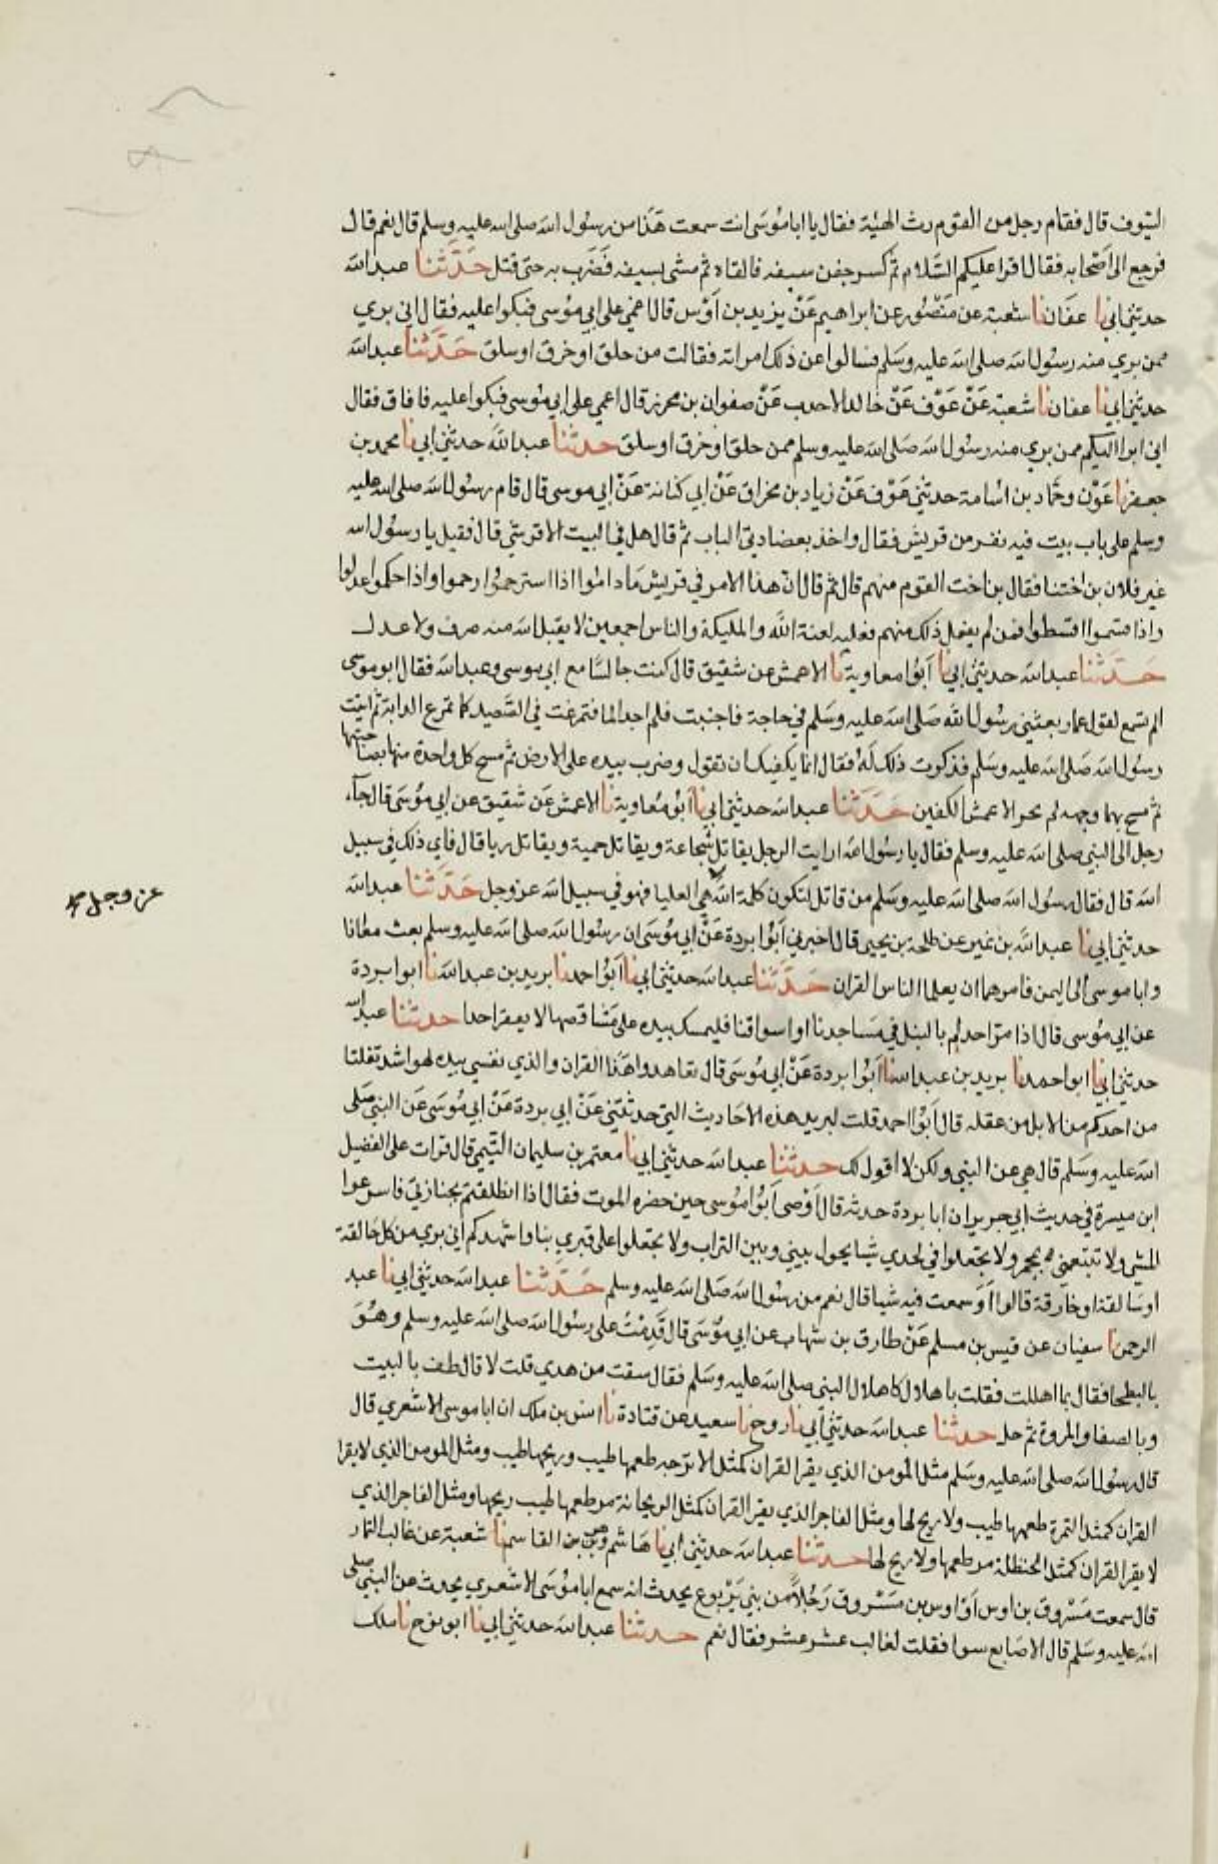 السيوف قال فقام رجل من القوم رث الهيئة فقال يا ابا موسى انت سمعت هذا من رسول الله صلى الله عليه وسلم قال نعم قال
فرجع الى اصحابه فقال اقرا عليكم السلام ثم كسر جفن سيفه فالقاه ثم مشى بسيفه فضرب به حتى قتل حدثنا عبد الله
حدثني ابي نا عفان نا شعبة عن منصور عن ابراهيم عن يزيد بن اوس قال اغمي على ابي موسى فبكوا عليه فقال اني بري
ممن بري منه رسول الله صلى الله عليه وسلم فسالوا عن ذلك امراته فقالت من حلق او خرق او سلق حدثنا عبد الله
حدثني ابي نا عفان نا شعبة عن عوف عن خالد الاحدب عن صفوان بن محرز قال اغمي على ابي موسى فبكوا عليه فافاق فقال
اني ابرا اليكم ممن بري منه رسول الله صلى الله عليه وسلم ممن حلق او خرق او سلق حدثنا عبد الله حدثني ابي نا محمد بن
جعفر نا عون وحماد بن اسامة حدثني عوف عن زياد بن مخراق عن ابي كنانة عن ابي موسى قال قام رسول الله صلى الله عليه
وسلم على باب بيت فيه نفر من قريش فقال واخذ بعضادتي الباب ثم قال هل في البيت الا قرشي قال فقيل يا رسول الله
غير فلان بن اختنا فقال بن اخت القوم منهم قال ثم قال ان هذا الامر في قريش ما داموا اذا استرحموا رحموا واذا حكموا عدلوا
واذا قسموا اقسطوا فمن لم يفعل ذلك منهم فعليه لعنة الله والمليكة والناس اجمعين لا يقبل الله منه صرف ولا عدل
حدثنا عبد الله حدثني ابي نا ابو معاوية نا الاعمش عن شقيق قال كنت جالسا مع ابي موسى وعبد الله فقال ابو موسى
الم تسمع لقول عمار بعثني رسول الله صلى الله عليه وسلم في حاجة فاجنبت فلم اجد الما فتمرغت في الصعيد كما تمرغ الدابة ثم اتيت
رسول الله صلى الله عليه وسلم فذكرت ذلك له فقال انما يكفيك ان تقول وضرب بيده على الارض ثم مسح كل واحدة منهما بصاحبتها
ثم مسح بهما وجهه لم يحر الاعمش الكفين حدثنا عبد الله حدثني ابي نا ابو معاوية نا الاعمش عن شقيق عن ابي موسى قال جاء
رجل الى النبي صلى الله عليه وسلم فقال يا رسول الله ارايت الرجل يقاتل شجاعة ويقاتل حمية ويقاتل ريا قال فاي ذلك في سبيل
الله قال فقال رسول الله صلى الله عليه وسلم من قاتل لتكون كلمة الله هي العليا فهو في سبيل الله عز وجل حدثنا عبد الله
عز وجل صح
حدثني ابي نا عبد الله بن نمير عن طلحة بن يحيى قال اخبرني ابو بردة عن ابي موسى ان رسول الله صلى الله عليه وسلم بعث معاذا
وابا موسى الى اليمن فامرهما ان يعلما الناس القران حدثنا عبد الله حدثني ابي نا ابو احمد نا بريد بن عبد الله نا ابو بردة
عن ابي موسى قال اذا مر احدكم بالنبل في مساجدنا او اسواقنا فليمسك بيده على مشاقصها لا يعقر احدا حدثنا عبد الله
حدثني ابي نا ابو احمد نا بريد بن عبد الله نا ابو بردة عن ابي موسى قال تعاهدوا هذا القران والذي نفسي بيده لهو اشد تفلتا
من احدكم من الابل من عقله قال ابو احمد قلت لبريد هذه الاحاديث التي حدثتني عن ابي بردة عن ابي موسى عن النبي صلى
الله عليه وسلم قال هي عن النبي ولكن لا اقول لك حدثنا عبد الله حدثني ابي نا معتمر بن سليمان التيمي قال قرات على الفضيل
ابن ميسرة في حديث ابي حريز ان ابا بردة حدثه قال اوصى ابو موسى حين حضره الموت فقال اذا انطلقتم بجنازتي فاسرعوا
المشي ولا تتبعني بمجمر ولا تجعلوا في لحدي شيا يحول بيني وبين التراب ولا تجعلوا على قبري بنا واشهدكم اني بري من كل حالقة
او سالقة او خارقة قالوا او سمعت فيه شيا قال نعم من رسول الله صلى الله عليه وسلم حدثنا عبد الله حدثني ابي نا عبد
الرحمن نا سفيان عن قيس بن مسلم عن طارق بن شهاب عن ابي موسى قال قدمت على رسول الله صلى الله عليه وسلم وهو
بالبطحا فقال بما اهللت فقلت باهلال كاهلال النبي صلى الله عليه وسلم فقال سقت من هدي قلت لا قال طف بالبيت
وبالصفا والمروة ثم حل حدثنا عبد الله حدثني ابي نا روح نا سعيد عن قتادة نا انس بن ملك ان ابا موسى الاشعري قال
قال رسول الله صلى الله عليه وسلم مثل المومن الذي يقرا القران كمثل الاترجة طعمها طيب وريحها طيب ومثل المومن الذي لا يقرا
القران كمثل التمرة طعمها طيب ولا ريح لها ومثل الفاجر الذي يقرا القران كمثل الريحانة مر طعمها طيب ريحها ومثل الفاجر الذي
لا يقرا القران كمثل الحنظلة مر طعمها ولا ريح لها حدثنا عبد الله حدثني ابي نا هاشم بن القاسم نا شعبة عن غالب التمار
قال سمعت مسروق بن اوس او اوس بن مسروق رجلا من بني يربوع يحدث انه سمع ابا موسى الاشعري يحدث عن النبي صلى
الله عليه وسلم قال الاصابع سوا فقلت لغالب عشر عشر فقال نعم حدثنا عبد الله حدثني ابي نا ابو نوح نا ملك